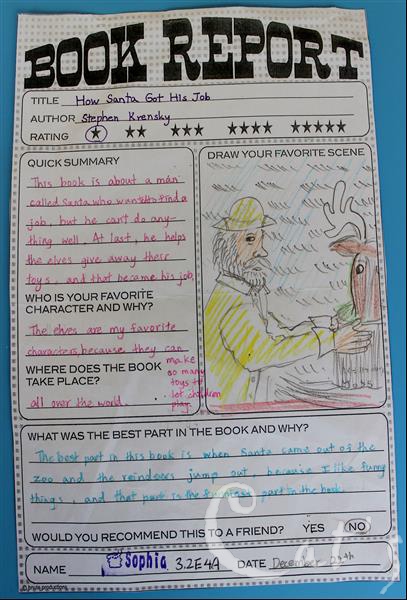 BOOK REPORT
TITLE How Santa Got His Job
AUTHOR Stephen Krensky
RATING ★ ★★ ★★★ ★★★★ ★★★★★
QUICK SUMMARY
This book is about a man
called Santa who wants to find a
job, but he can't do any-
thing well. At last, he helps
the elves give away their
toys, and that became his job.
WHO IS YOUR FAVORITE
CHARACTER AND WHY?
The elves are my favorite
characters, because they can
make
so many
toys to
let children
play.
WHERE DOES THE BOOK
TAKE PLACE?
all over the world.
DRAW YOUR FAVORITE SCENE
WHAT WAS THE BEST PART IN THE BOOK AND WHY?
The best part in this book is when Santa came out of the
zoo and the reindeers jump out, because I like funny
things, and that part is the funniest part in the book.
WOULD YOU RECOMMEND THIS TO A FRIEND? YES NO
NAME Sophia 3.2E4A DATE December 22th